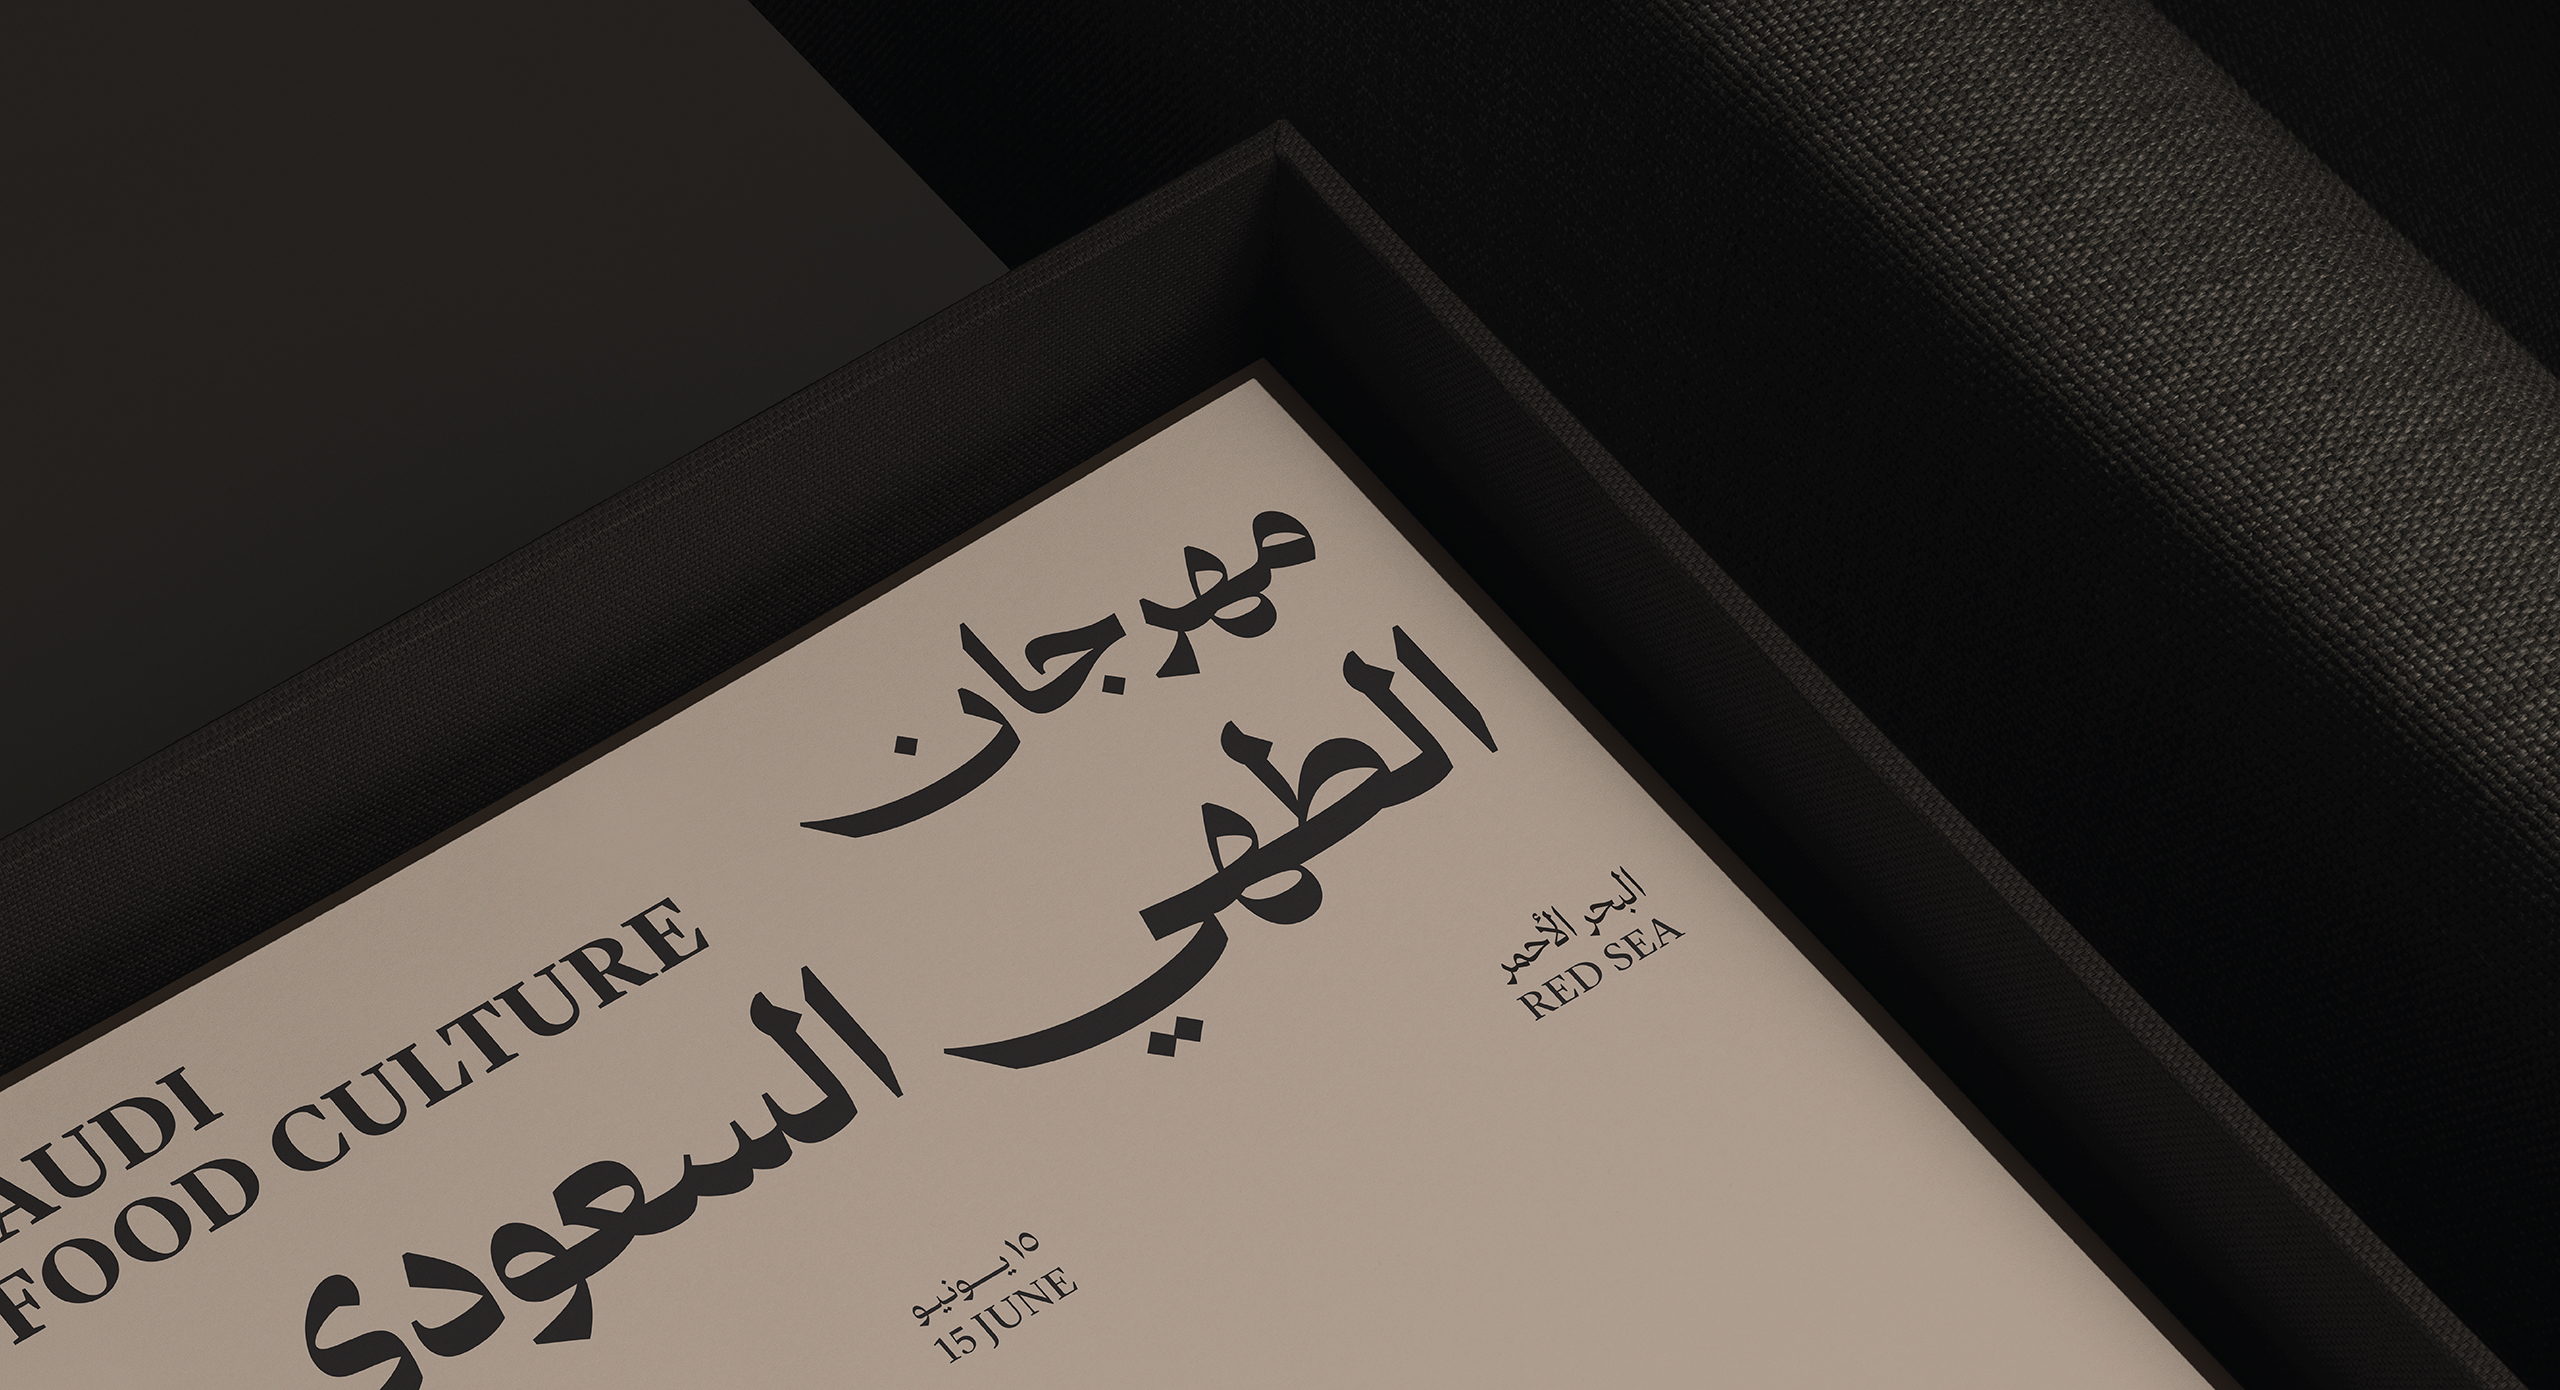 مهرجان
الطهي
السعودي
AUDI
FOOD CULTURE
البحر الأحمر
RED SEA
١٥ يـــونيو
15 JUNE